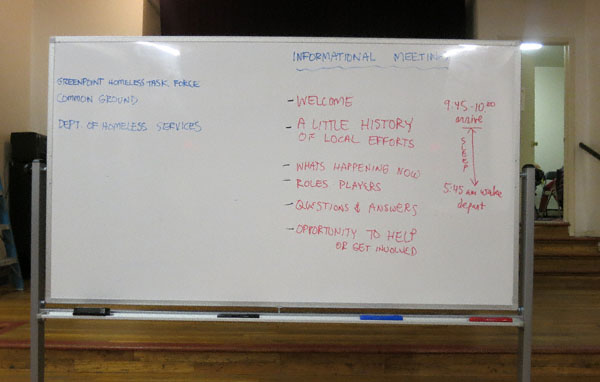 GREENPOINT HOMELESS TASK FORCE
COMMON GROUND
DEPT. OF HOMELESS SERVICES
INFORMATIONAL MEETING
- WELCOME
- A LITTLE HISTORY
OF LOCAL EFFORTS
- WHATS HAPPENING NOW
- ROLES PLAYERS
- QUESTIONS & ANSWERS
- OPPORTUNITY TO HELP
OR GET INVOLVED
9:45-10:00
arrive
SLEEP
5:45 am wake
depart